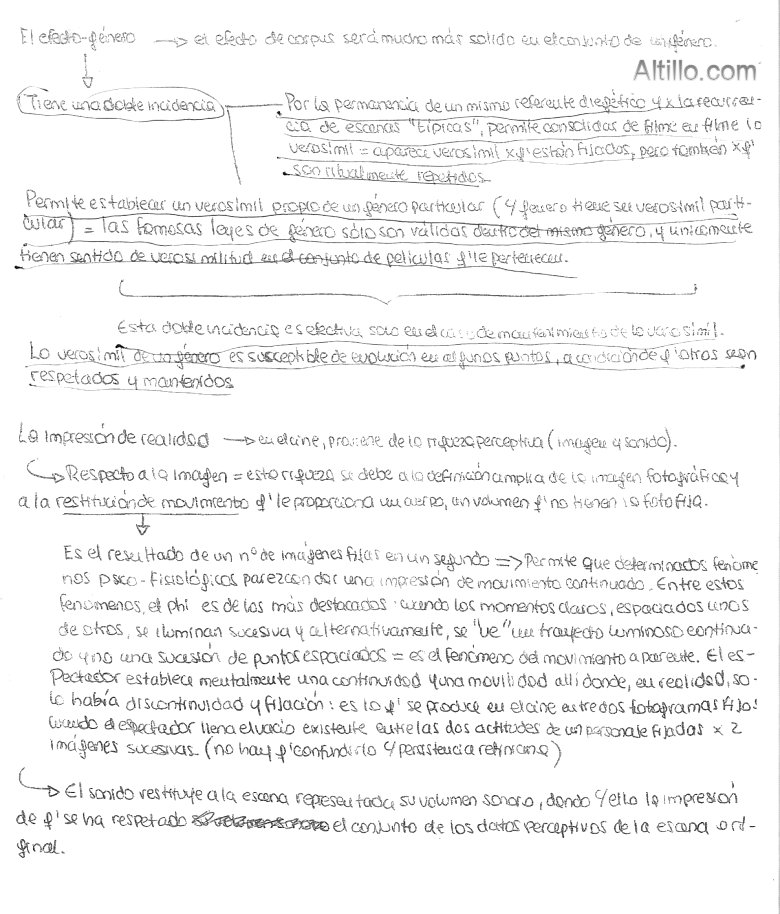 El efecto-género → el efecto de corpus será mucho más solido en el conjunto de un género.
Altillo.com
Tiene una doble incidencia
Por la permanencia de un mismo referente diegético y x la recurren-
cia de escenas "típicas", permite consolidas de filme en filme lo
verosímil = aparece verosímil xq' están fijados, pero también xq'
son ritualmente repetidos.
Permite establecer un verosímil propio de un género particular (c/ género tiene ser verosímil parti-
cular) = las famosas leyes de género sólo son válidas dentro del mismo género, y únicamente
tienen sentido de verosimilitud en el conjunto de películas q' le pertenecen.
Esta doble incidencia es efectiva solo en el caso de mantenimiento de lo verosímil.
Lo verosímil de un género es susceptible de evolución en algunos puntos, a condición de q' otros sean
respetados y mantenidos
La impresión de realidad → en el cine, proviene de la riqueza perceptiva (imagen y sonido).
Respecto a la imagen = esta riqueza se debe a la definición amplia de la imagen fotográfica y
a la restitución de movimiento q' le proporciona un cuerpo, un volumen q' no tienen la foto fija.
Es el resultado de un nº de imágenes fijas en un segundo => Permite que determinados fenóme
nos psico-fisiológicos parezcan dar una impresión de movimiento continuado. Entre estos
fenómenos, el phi es de los más destacados: cuando los momentos claros, espaciados unos
de otros, se iluminan sucesiva y alternativamente, se "ve" un trayecto luminoso continua-
do y no una sucesión de puntos espaciados = es el fenómeno del movimiento aparente. El es-
pectador establece mentalmente una continuidad y una movilidad allí donde, en realidad, so-
lo había discontinuidad y fijación: es lo q' se produce en el cine entre dos fotogramas fijos:
cuando el espectador llena el vacío existente entre las dos actitudes de un personaje fijadas x 2
imágenes sucesivas. (no hay q' confundirlo c/ persistencia retiniana)
El sonido restituye a la escena representada su volumen sonoro, dando c/ ello la impresión
de q' se ha respetado el conjunto de los datos perceptivos de la escena ori-
ginal.